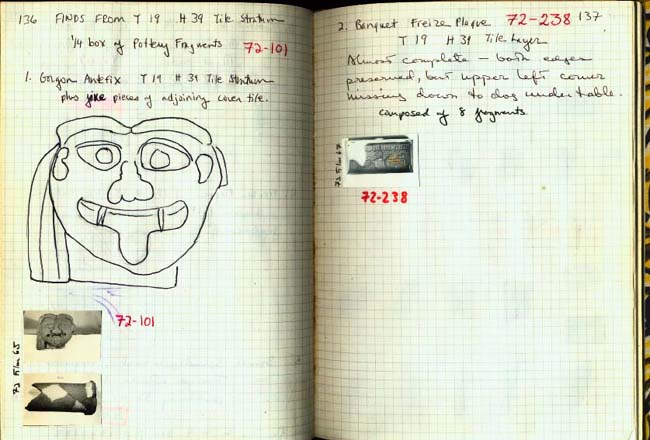 136 FINDS FROM T 19 H 39 Tile Stratum
1/4 box of Pottery Fragments 72-101
1. Gorgon Antefix T 19 H 39 Tile Stratum
plus pieces of adjoining cover tile.
72-101
73 Film 65
137
2. Banquet Freize Plaque 72-238
T 19 H 39 Tile Layer
Almost complete — both edges
preserved, but upper left corner
missing down to dog under table.
composed of 8 fragments.
72-238